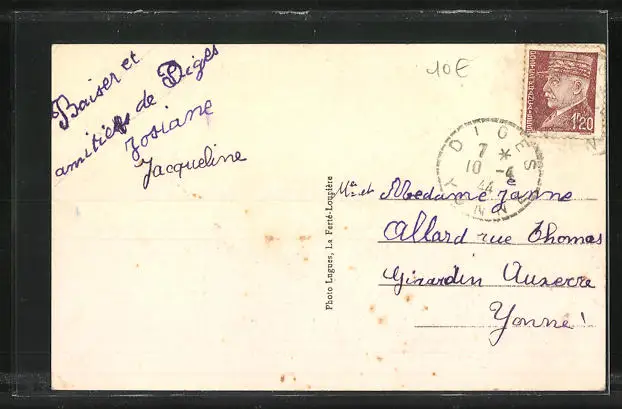 Baiser et
amitiés de Diges
Josiane
Jacqueline
10€
1F20
DIGES
7 *
10 -4
44
YONNE
Photo Lugues, La Ferté-Loupière
Mr et Medame Jeanne
Allard rue Thomas
Girardin Auxerre
Yonne!